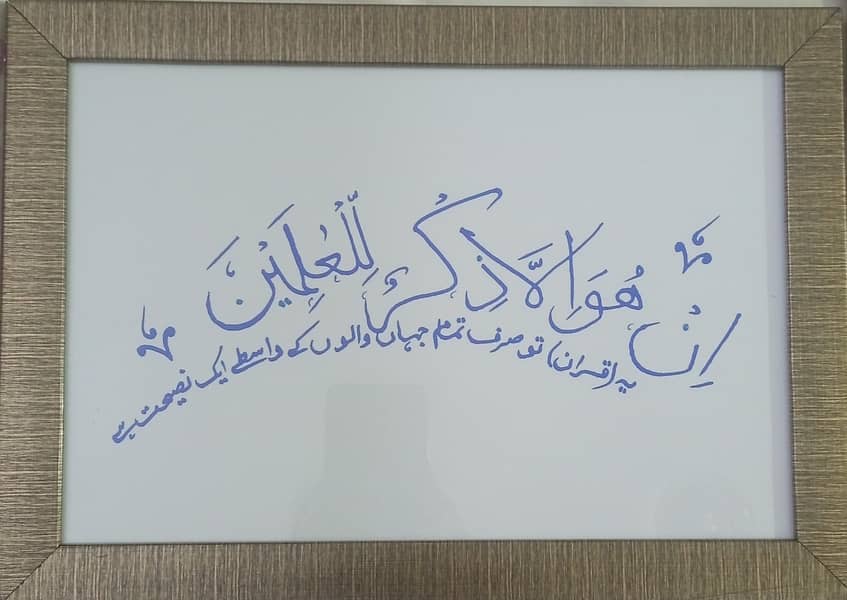 اِنْ هُوَ اِلَّا ذِكْرٌ لِّلْعٰلَمِيْنَ
یہ (قرآن) تو صرف تمام جہاں والوں کے واسطے ایک نصیحت ہے